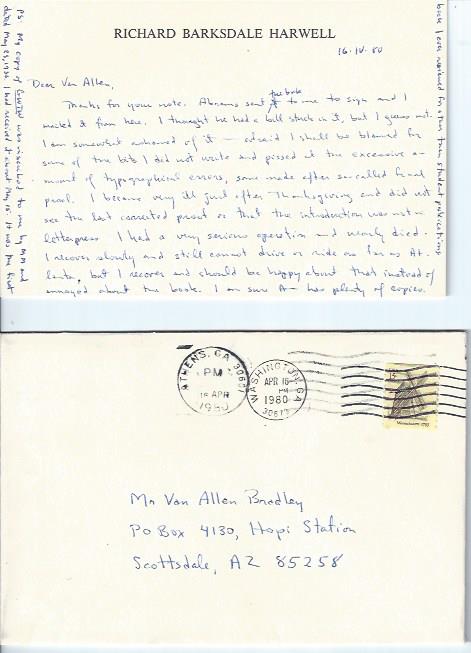 RICHARD BARKSDALE HARWELL
16.IV.80
Dear Van Allen,
Thanks for your note. Abrams sent the book to me to sign and I
mailed it from here. I thought he had a full stock on it, but I guess not.
I am somewhat ashamed of it — afraid I shall be blamed for
some of the bits I did not write and pissed at the excessive a-
mount of typographical errors, some made after so-called final
proof. I became very ill just after Thanksgiving and did not
see the last corrected proof or that the introduction was not in
letterpress. I had a very serious operation and nearly died.
I recover slowly and still cannot drive or ride as far as At-
lanta, but I recover and should be happy about that instead of
annoyed about the book. I am sure A— has plenty of copies.
PS: My copy of GWTW was inscribed to me by MM and
dated May 25, 1936. I had received it about May 15. It was the first
book I ever reviewed for other than student publications
ATHENS, GA 30601
PM
16 APR
1980
WASHINGTON, GA
APR 16
PM
1980
30673
Mr Van Allen Bradley
PO Box 4130, Hopi Station
Scottsdale, AZ 85258